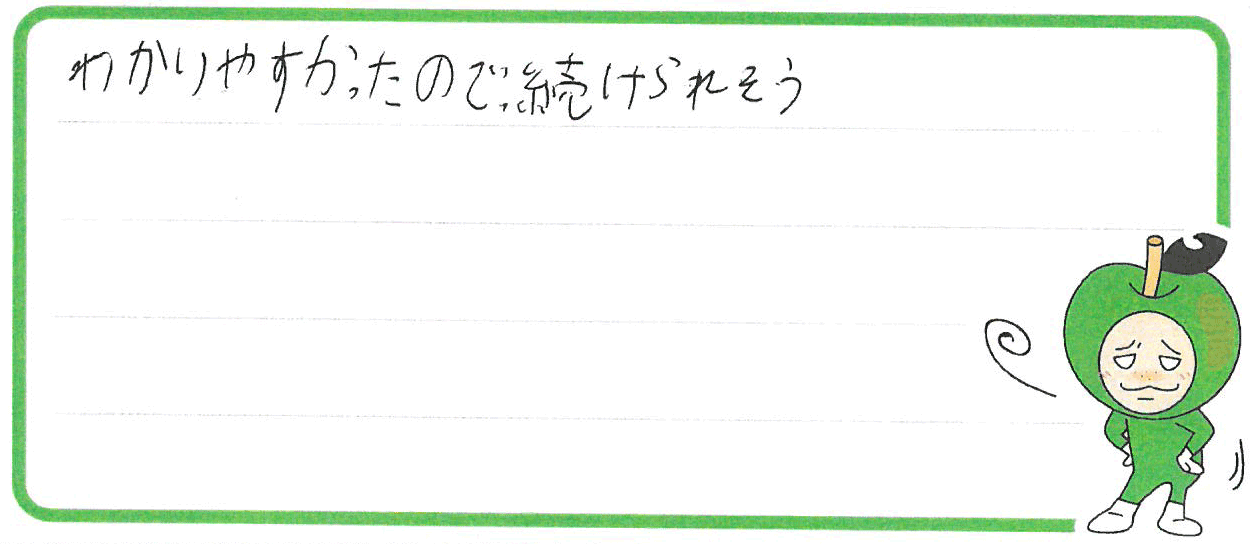 わかりやすかったので続けられそう